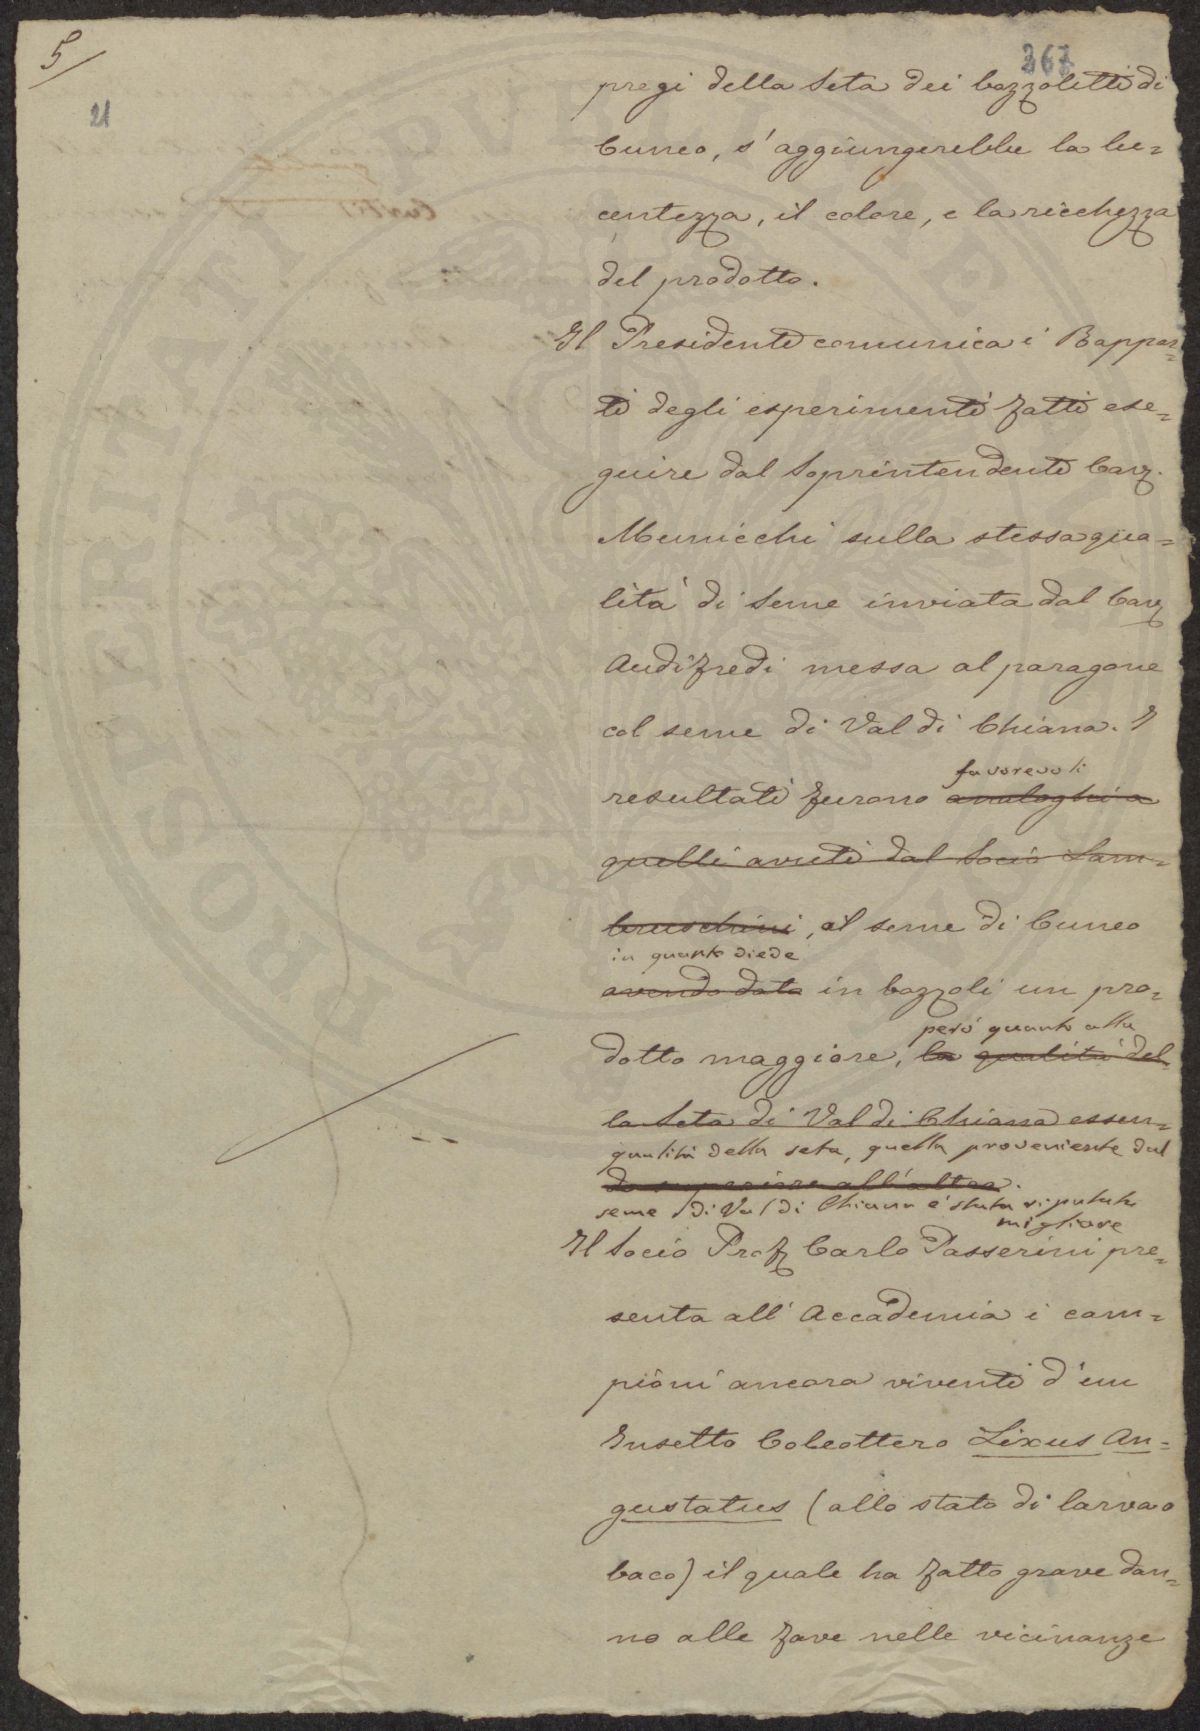 5/
267
21
pregi della Seta dei bozzoletti di
Cuneo, s'aggiungerebbe la lu=
centezza, il colore, e la ricchezza
del prodotto.
Il Presidente comunica i Rappor=
ti degli esperimenti fatti ese=
guire dal Soprintendente Cav.
Municchi sulla stessa qua=
lità di Seme inviata dal Cav
Audifredi messa al paragone
col seme di Val di Chiana. I
favorevoli
resultati furono analoghi a
quelli avuti dal Socio Lam=
bruschini, il seme di Cuneo
in quanto diede
avendo dato in bozzoli un pro=
però quanto alla
dotto maggiore, la qualità del=
la Seta di Val di Chiana essen=
qualità della seta, quella proveniente dal
do superiore all'altra.
seme di Val di Chiana è stata reputata
migliore
Il Socio Prof Carlo Passerini pre=
senta all'Accademia i cam=
pioni ancora viventi d'un
Insetto Coleottero Lixus An=
gustatus (allo stato di larva o
baco) il quale ha fatto grave dan=
no alle fave nelle vicinanze